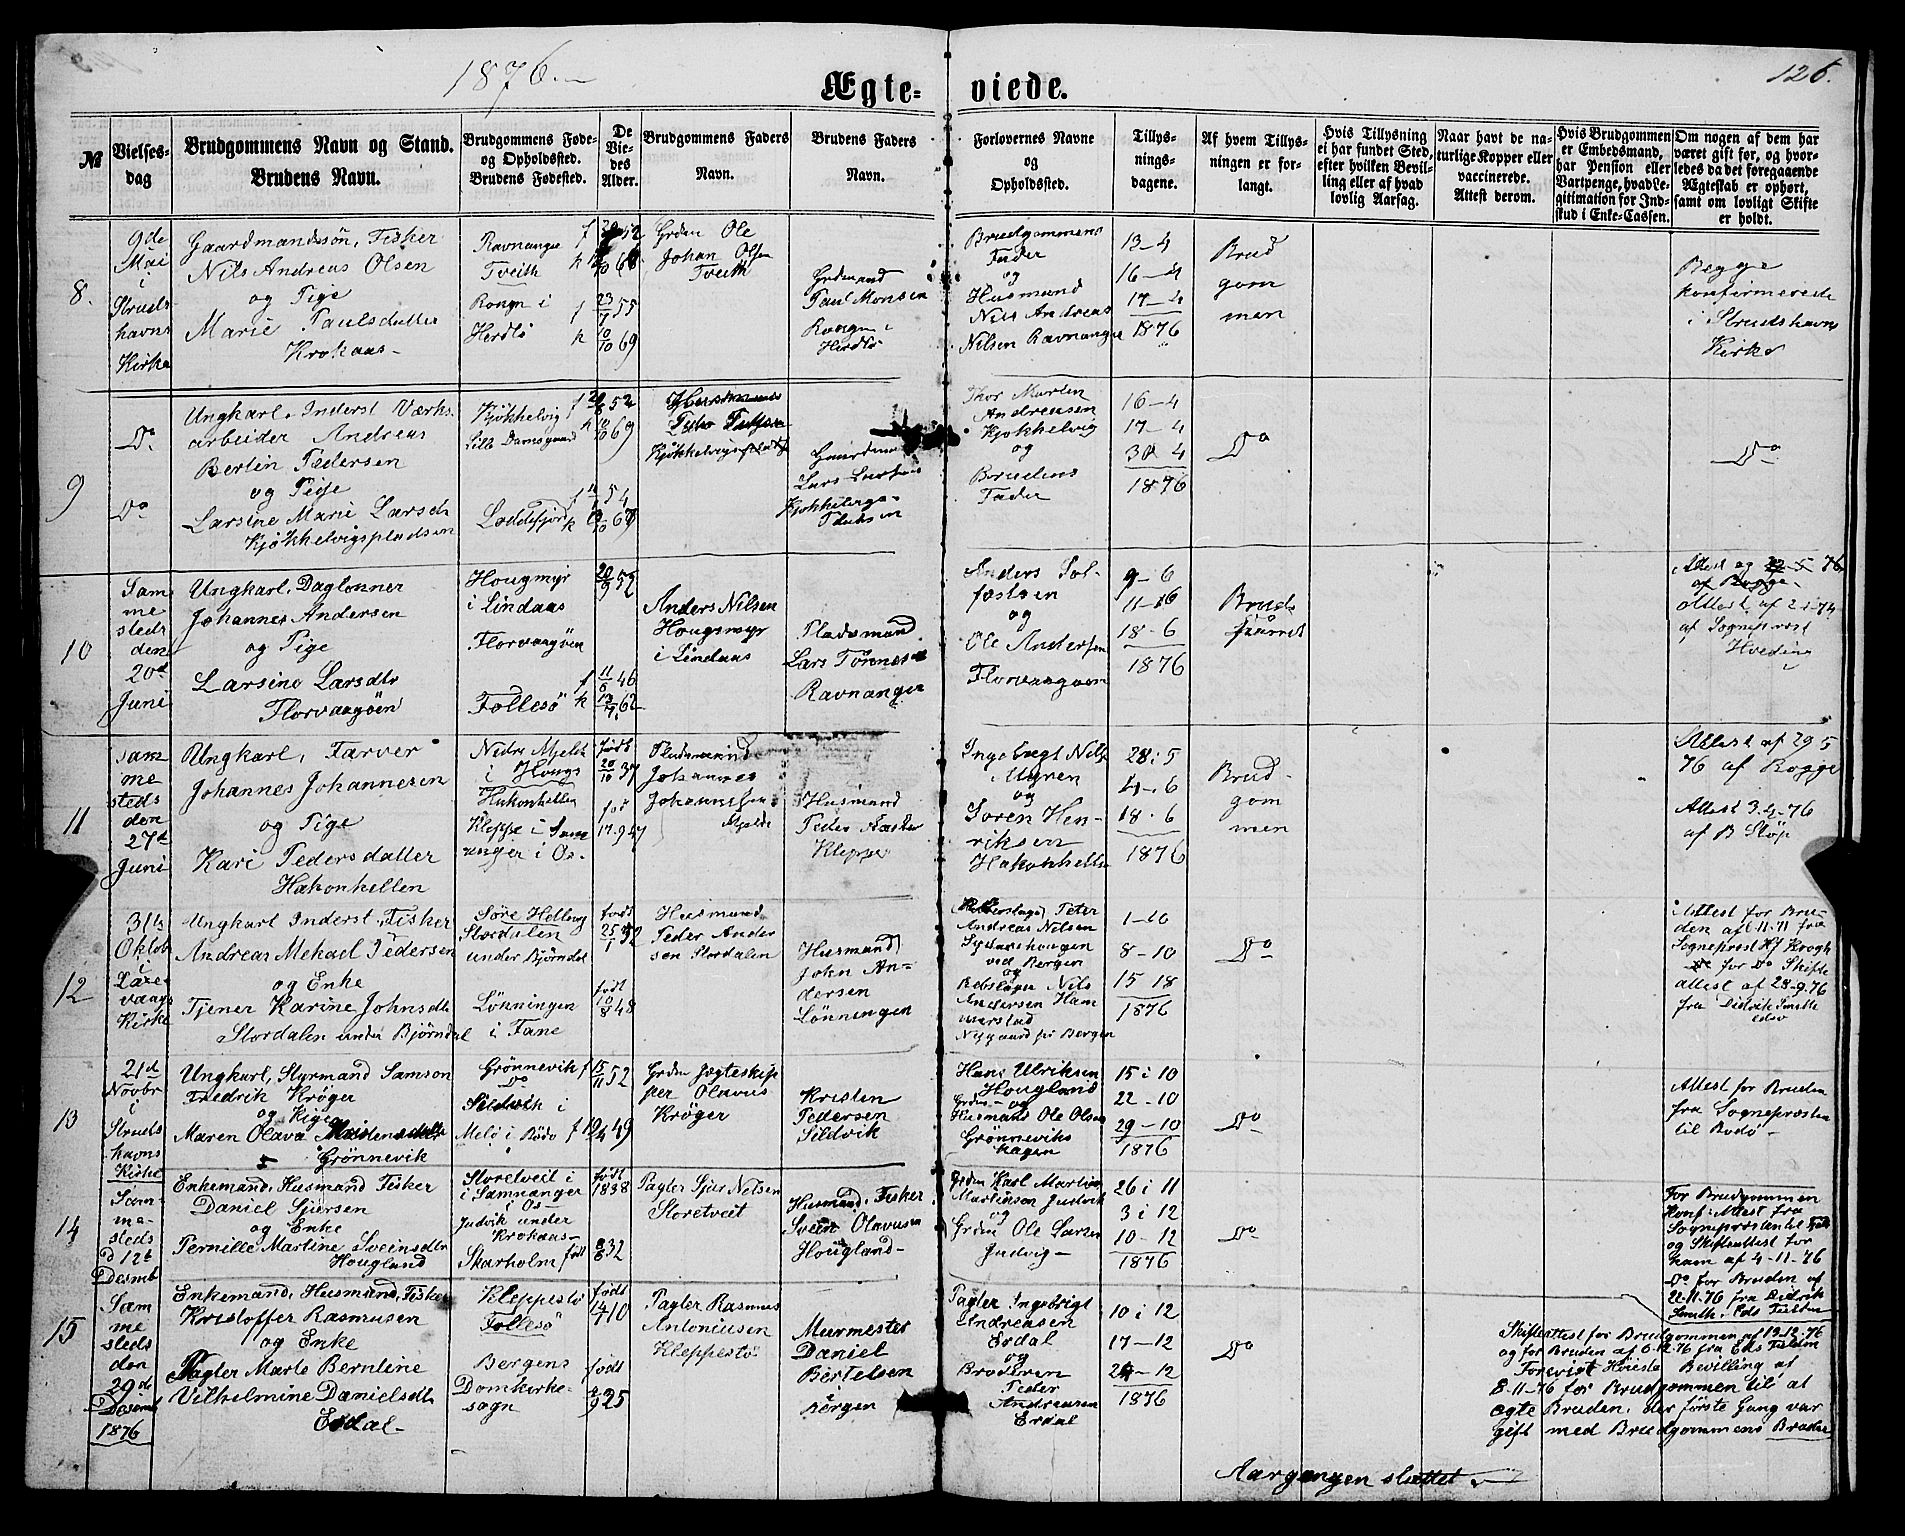 1876.
Ægte=viede.
126.
№
Vielses-dag
Brudgommens Navn og Stand.
Brudens Navn.
Brudgommens Føde- og Opholdssted.
Brudens Fødested.
De Vie-des Alder.
Brudgommens Faders Navn.
Brudens Faders Navn.
Forlovernes Navne og Opholdssted.
Tillys-nings-dagene.
Af hvem Tillys-ningen er for-langt.
Hvis Tillysning ei har fundet Sted, efter hvilken Bevil-ling eller af hvad lovlig Aarsag.
Naar havt de na-turlige Kopper eller vaccinerede. Attest derom.
Hvis Brudgommen er Embedsmand, har Pension eller Vartpenge, hvad Le-gitimation for Ind-skud i Enke-Cassen.
Om nogen af dem har været gift før, og hvor-ledes da det foregaaende Ægteskab er ophørt, samt om lovligt Skifte er holdt.
8.
9de
Mai
i
Struds
havns
Kirke
Gaardmandssøn, Fisker
Nils Andreas Olsen
og Pige
Marie Paulsdatter
Krokaas
Ravnange
Tveith
Rongn i
Herdlø
f 52
k 10 68
f 23/1 55
k 10/10 69
Grdm Ole
Johan Olsen
Tveith
Grdmand
Paul Monsen
Rongn i
Herdlø
Brudgommens
Fader
og
Husmand
Nils Andreas
Nilsen Ravnange
13-4
16-4
17-4
1876
Brud
gom
men
Begge
konfirmerede
i Strudshavns
Kirke
9
Do
Do
Ungkarl, Inderst Værks
arbeider Andreas
Bertin Pedersen
og Pige
Larsine Marie Larsdr
Kjøkkelvigspladsen
Kjøkkelvig
Lille Damsgaard
Loddefjord
f 52
k 10/10 69
f 54
k 10
Husmand
Kjøkkelvigspladsen
Lars
Thor Martin
Andreasen
Kjøkkelvig
og
Brudens
Fader
16-4
17-4
30 4
1876
Do
Do
10
Sam
me
steds
den
20de
Juni
Ungkarl, Daglønner
Johannes Andersen
og Pige
Larsine Larsdtr
Florvaagøen
Hougmyr
i Lindaas
Florvaagøen
Follesø
20/9 52
f 11/6 46
k 62
Anders Nilsen
Hougsmyr
i Lindaas
Pladsmand
Lars Tørrises
Ravnanger
Anders Sol-
fæstsen
og
Ole Andersen
Florvaagøen
9-6
11-6
18-6
1876
Bruds
parret
Attest og 22-5 76
af Bogge
Attest af 2-1-74
af Sogneprest
Hveding
11
Sam
me
steds
den
27de
Juni
Ungkarl, Farver
Johannes Johannesen
og Pige
Kari Pedersdatter
Hakonhellen
Nedre Mjelde
i Hougs
Hakonhellen
Kleppe i Sam
nanger i Os.
født
20/10 37
fød
17-9 47
Pladsmand
Johannes
Johannesen
Mjelde
Husmand
Peder
Kleppe
Ingebregt Nils
i Myren
og
Søren Hen-
riksen
Hakonhellen
28 i 5
4-6
18-6
1876
Brud-
gom
men
Attest af 29 5
76 af Bogge
Attest 3.4-76
af B Støp
12
31te
Oktob
i
Laxe
vaags
Kirke
Ungkarl Inderst, Fisker
Andreas Mekael Pedersen
og Enke
Tjener Karine Johnsdtr
Stordalen under Bjørndal
Søre Hellevig
Stordalen
under Bjørndal
Lønningen
i Fane
født
25/1 52
født
10/8 48
Husmand
Peder Ander
sen Stordalen
Husmand
John An-
dersen
Lønningen
Peter
Andreas Nilsen
Sydneshougen
ved Bergen
og
Rebslager Nils
Andersen Ham
merstad
Nygaard for Bergen
1-10
8-10
15 18
1876
Do
Attest for Bru-
den af 6-11-71 fra
Sogneprest Hf Krogh
Do for Do Skifte
attest af 28-9-76
fra Didrik Smith
edsv
13
21de
Novbr
i
Struds
havns
Kirke
Ungkarl, Styrmand Samson
Fredrik Krøger
og Pige
Maren Olava Kristensdatter
Grønnevik
Grønnevik
Do
Sildvik i
Melø i Rødø
f 15/11 52
f 12/4 49
Grdm Jægteskip
per Olavus
Krøger
Kristen
Pedersen
Sildvik
Hans Ulriksen
Hougland
Grdm og
Husmand Ole Olsen
Grønneviks
hagen
15 i 10
22-10
29-10
1876
Do
Attest for Bruden
fra Sognepræsten
til Bodø
14
Sam-
me-
steds
D 12te
Desmb
Enkemand, Husmand Fisker
Daniel Sjursen
og Enke
Pernille Martine Sveinsdtr
Hougland
Storetveit i
i Samnanger
i Os
Judvik under
Krokaas
Skarholm
født
1838
født 8/6 32
Pagter Sjur Nelsen
Storetveit
Husmand, Fisker
Svein Olavusen
Hougland
Grdm Karl Martin
Martinsen Judvik
og
Grdm Ole Larsen
Judvig
26 i 11
3 i 12
10-12
1876
Do
For Brudgommen
Konf: Attest fra
Sognepresten til
og Skifteattest for
ham af 4-11-76
Do for Bruden af
22-11-76 fra Didrik
Smith, Eds Filstin
15
Sam
me
steds
den
29de
Desemb
1876
Enkemand, Husmand, Fisker
Kristoffer Rasmusen
og Enke
Pagter Marte Berntine
Vilhelmine Danielsdtr
Erdal
Kleppestø
Follesø
Bergens
Domkirke-
sogn
født
14/7 10
født
2/9 25
Pagter Rasmus
Antoniusen
Kleppestø
Murmester
Daniel
Bertelsen
i
Bergen
Pagter Ingebrigt
Andreasen
Erdal
og
Broderen
Peder
Andreasen
Erdal
10 i 12
17-12
24-12
1876
Do
Skifteattest for Brudgommen af 13-12-76
og for Bruden af 6-12-76 fra Eds Filstin
Forevist Høieste Bevilling af
8-11-76 for Brudgommen til at
ægte Bruden, der første Gang var
gift med Brudgommens Broder
Aargangen sluttet